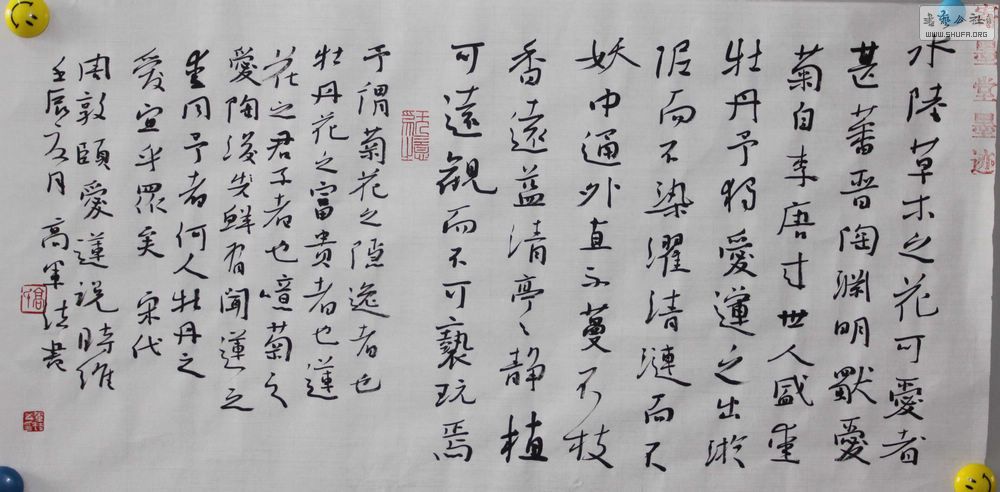 書藝公社
WWW.SHUFA.ORG
墨堂墨迹
水陸草木之花可愛者
甚蕃晋陶渊明獨愛
菊自李唐来世人盛爱
牡丹予独愛蓮之出淤
泥而不染濯清漣而不
妖中通外直不蔓不枝
香遠益清亭々静植
可遠觀而不可褻玩焉
予謂菊花之隐逸者也
牡丹花之富贵者也蓮
花之君子者也噫菊之
愛陶後鮮有聞蓮之
爱同予者何人牡丹之
愛宜乎眾矣 宋代
周敦頤愛蓮説時維
壬辰月 高軍法书